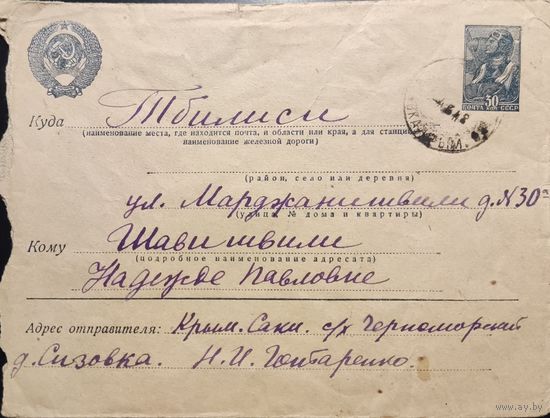 Куда Тбилиси
(наименование места, где находится почта, и области или края, а для станций
наименование железной дороги)
30
ПОЧТА СССР
(район, село или деревня)
ул. Марджанишвили д. N 30а
(улица, № дома и квартиры)
Кому Шавишвили
(подробное наименование адресата)
Надежде Павловне
Адрес отправителя: Крым. Саки. с/х Черноморский
д. Сизовка. Н. И. Гонтаренко.
www.ay.by